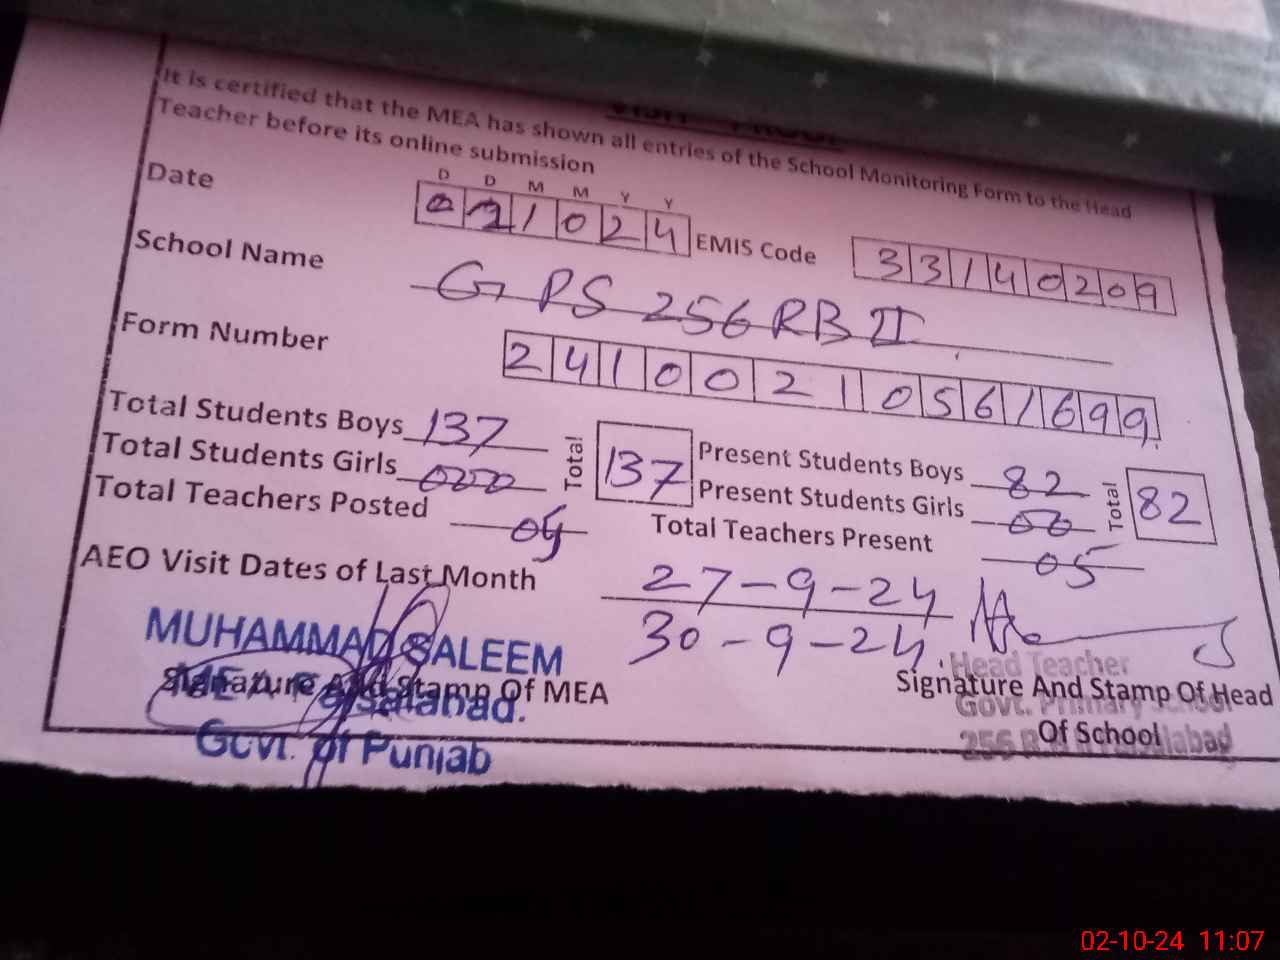 It is certified that the MEA has shown all entries of the School Monitoring Form to the Head
Teacher before its online submission
D D M M Y Y
Date 021024 EMIS Code 33140209
School Name G PS 256 RB II
Form Number 24100210561699
Total Students Boys 137 Total 137 Present Students Boys 82 Total 82
Total Students Girls 000 Present Students Girls 00
Total Teachers Posted Total Teachers Present 05
AEO Visit Dates of Last Month 27-9-24
30-9-24
MUHAMMAD SALEEM
MEA Faisalabad.
Govt. of Punjab
Signature And Stamp Of MEA
Head Teacher
Govt. Primary School
256 R B Faisalabad
Signature And Stamp Of Head
Of School
02-10-24 11:07